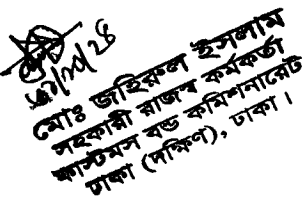 মোঃ জহিরুল ইসলাম
সহকারী রাজস্ব কর্মকর্তা
কাস্টমস বন্ড কমিশনারেট
ঢাকা (দক্ষিণ), ঢাকা।